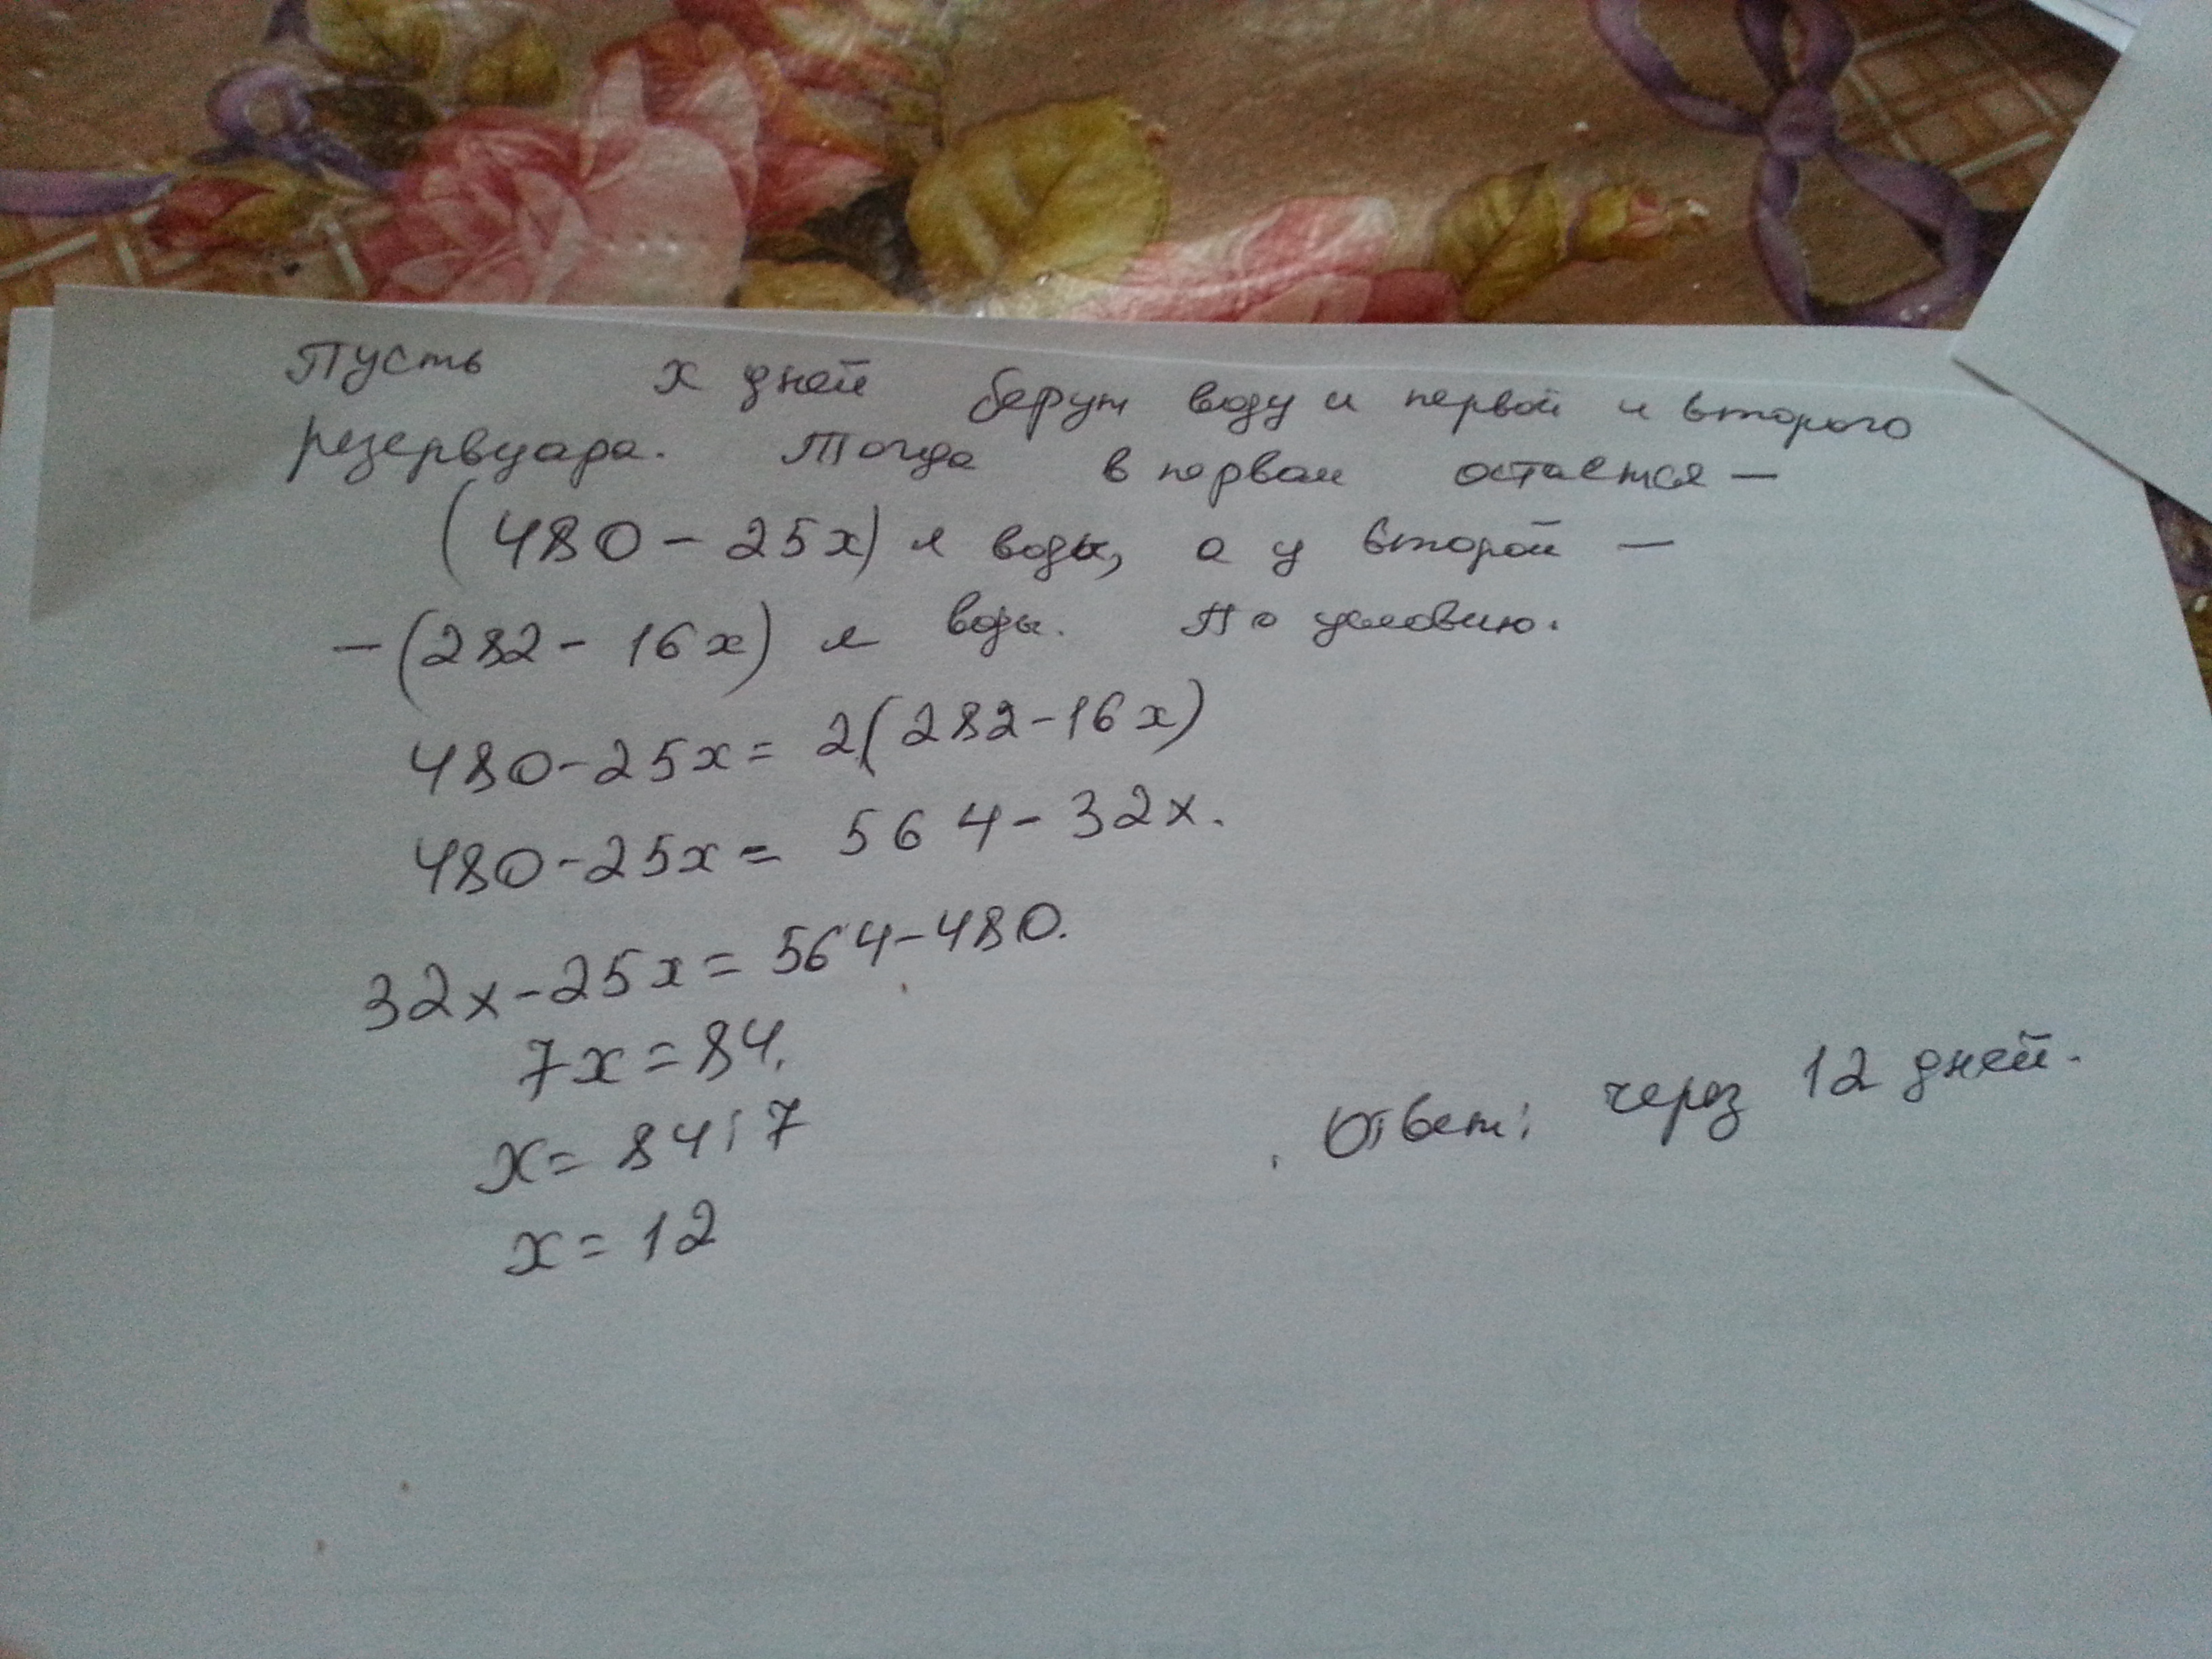 Пусть х дней берут воду и первой и второго
резервуара. Тогда в первом остается —
(480 - 25х) л воды, а у второй —
— (282 - 16х) л воды. По условию.
480 - 25х = 2(282 - 16х)
480 - 25х = 564 - 32х.
32х - 25х = 564 - 480.
7х = 84.
х = 84 : 7
х = 12
Ответ: через 12 дней.